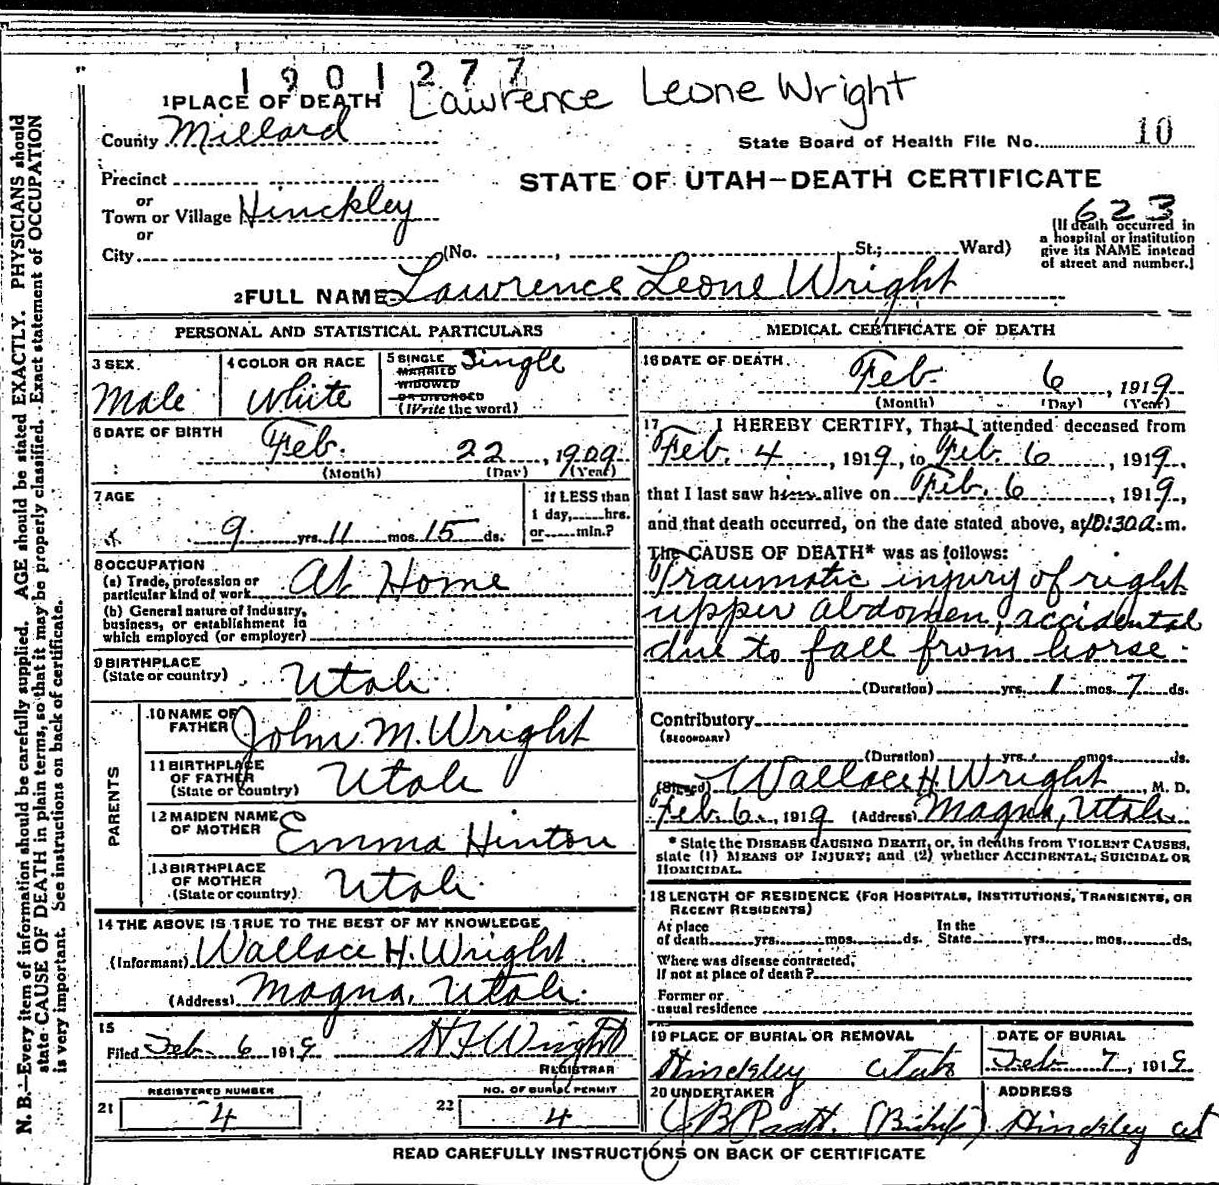 1901277
Lawrence Leone Wright
1 PLACE OF DEATH
County Millard
State Board of Health File No. 10
Precinct
STATE OF UTAH—DEATH CERTIFICATE
or
Town or Village Hinckley
or
City (No. , St.; Ward)
623
(If death occurred in
a hospital or institution
give its NAME instead
of street and number.)
2 FULL NAME Lawrence Leone Wright
PERSONAL AND STATISTICAL PARTICULARS
3 SEX
Male
4 COLOR OR RACE
White
5 SINGLE
MARRIED
WIDOWED
OR DIVORCED
(Write the word)
Single
6 DATE OF BIRTH
Feb. 22, 1909
(Month) (Day) (Year)
7 AGE
9 yrs. 11 mos. 15 ds.
If LESS than
1 day, hrs.
or min.?
8 OCCUPATION
(a) Trade, profession or
particular kind of work At Home
(b) General nature of industry,
business, or establishment in
which employed (or employer)
9 BIRTHPLACE
(State or country) Utah
PARENTS
10 NAME OF
FATHER John M. Wright
11 BIRTHPLACE
OF FATHER
(State or country) Utah
12 MAIDEN NAME
OF MOTHER Emma Hinton
13 BIRTHPLACE
OF MOTHER
(State or country) Utah
14 THE ABOVE IS TRUE TO THE BEST OF MY KNOWLEDGE
(Informant) Wallace H. Wright
(Address) Magna, Utah.
15
Filed Feb 6 1919 H F Wright
REGISTRAR
REGISTERED NUMBER
21 4
NO. OF BURIAL PERMIT
22 4
MEDICAL CERTIFICATE OF DEATH
16 DATE OF DEATH
Feb. 6, 1919
(Month) (Day) (Year)
17 I HEREBY CERTIFY, That I attended deceased from
Feb. 4, 1919, to Feb. 6, 1919,
that I last saw him alive on Feb. 6, 1919,
and that death occurred, on the date stated above, at 10:30 a.m.
The CAUSE OF DEATH* was as follows:
Traumatic injury of right
upper abdomen, accidental
due to fall from horse.
(Duration) yrs. 1 mos. 7 ds.
Contributory
(SECONDARY)
(Duration) yrs. mos. ds.
(Signed) Wallace H Wright, M. D.
Feb. 6, 1919 (Address) Magna, Utah.
* State the DISEASE CAUSING DEATH, or, in deaths from VIOLENT CAUSES,
state (1) MEANS OF INJURY; and (2) whether ACCIDENTAL, SUICIDAL OR
HOMICIDAL.
18 LENGTH OF RESIDENCE (FOR HOSPITALS, INSTITUTIONS, TRANSIENTS, OR
RECENT RESIDENTS)
At place
of death yrs. mos. ds.
In the
State yrs. mos. ds.
Where was disease contracted,
if not at place of death?
Former or
usual residence
19 PLACE OF BURIAL OR REMOVAL
Hinckley Utah
DATE OF BURIAL
Feb 7, 1919
20 UNDERTAKER
J B Pratt. (Bishp)
ADDRESS
Hinckley Ut
READ CAREFULLY INSTRUCTIONS ON BACK OF CERTIFICATE
N. B.—Every item of information should be carefully supplied. AGE should be stated EXACTLY. PHYSICIANS should
state CAUSE OF DEATH in plain terms, so that it may be properly classified. Exact statement of OCCUPATION
is very important. See instructions on back of certificate.